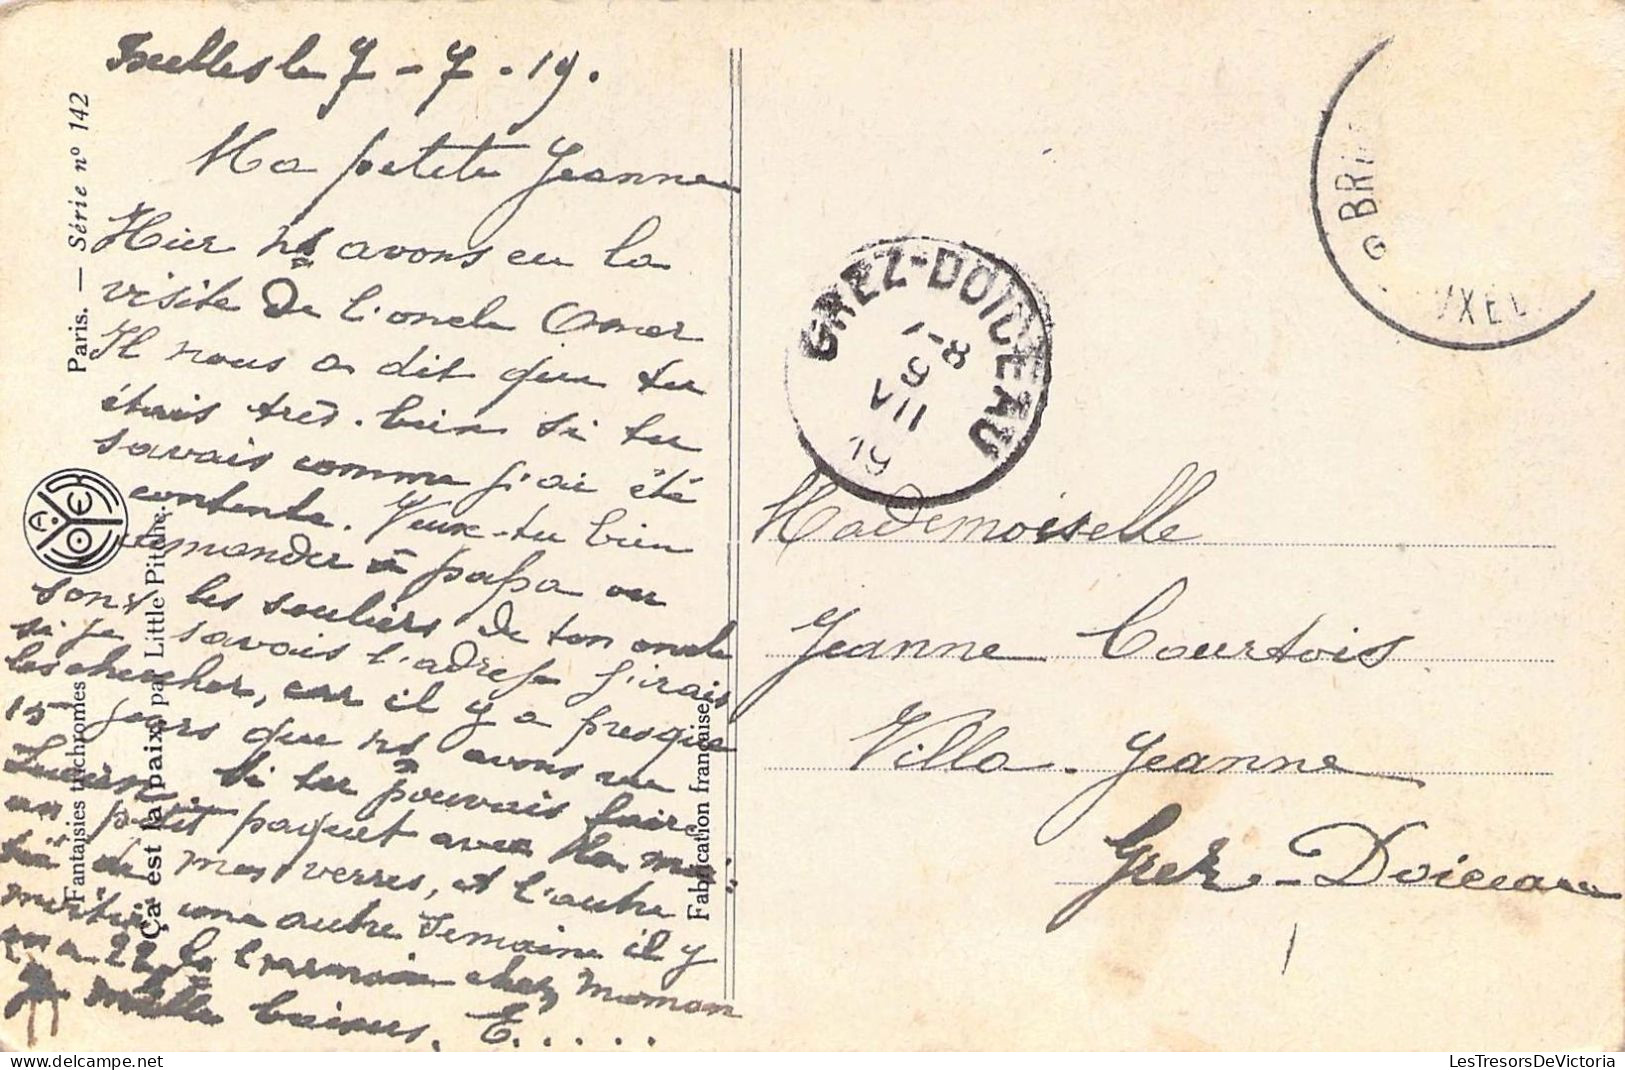 Ixelles le 7 - 7 - 19.
Ma petite Jeanne
Hier ns avons eu la
visite de l'oncle Omer
Il nous a dit que tu
étais très bien si tu
savais comme j'ai été
contente. Veux-tu bien
demander à papa ou
sont les souliers de ton oncle
si je savais l'adresse j'irais
les chercher, car il y a presque
15 jours que ns avons vu
Lucien. Si tu pouvais faire
un petit paquet avec la moi-
tié de mes verres, et l'autre
moitié une autre semaine il y
en a 22. Je chez maman
mille baisers. E.....
Paris. — Série nº 142
Fantaisies trichromes
Ça est la paix, par Little Pitche.
Fabrication française
GREZ-DOICEAU
7-8
9
VII
19
BRU
UXEL
Mademoiselle
Jeanne Courtois
Villa Jeanne
Grez-Doiceau
LesTresorsDeVictoria.com